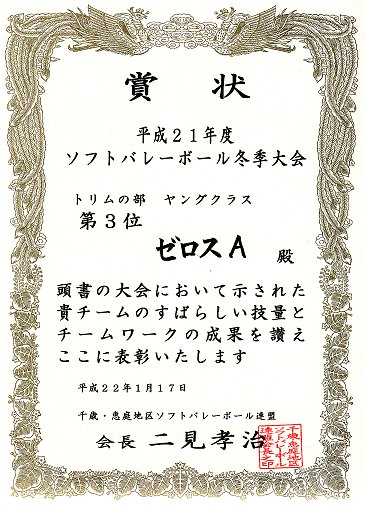 賞状
平成21年度
ソフトバレーボール冬季大会
トリムの部 ヤングクラス
第3位
ゼロスA 殿
頭書の大会において示された
貴チームのすばらしい技量と
チームワークの成果を讃え
ここに表彰いたします
平成22年1月17日
千歳・恵庭地区ソフトバレーボール連盟
会長 二見孝治
千歳恵庭地区
ソフトバレーボール
連盟会長之印